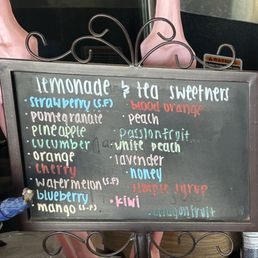 lemonade & tea sweetners
• strawberry (s.f)
• pomegranate
• pineapple
• cucumber
• orange
• cherry
• watermelon (s.f)
• blueberry
• mango (s.f)
• blood orange
• peach
• passionfruit
• white peach
• lavender
• honey
• simple syrup
• kiwi
dragonfruit
WARNING